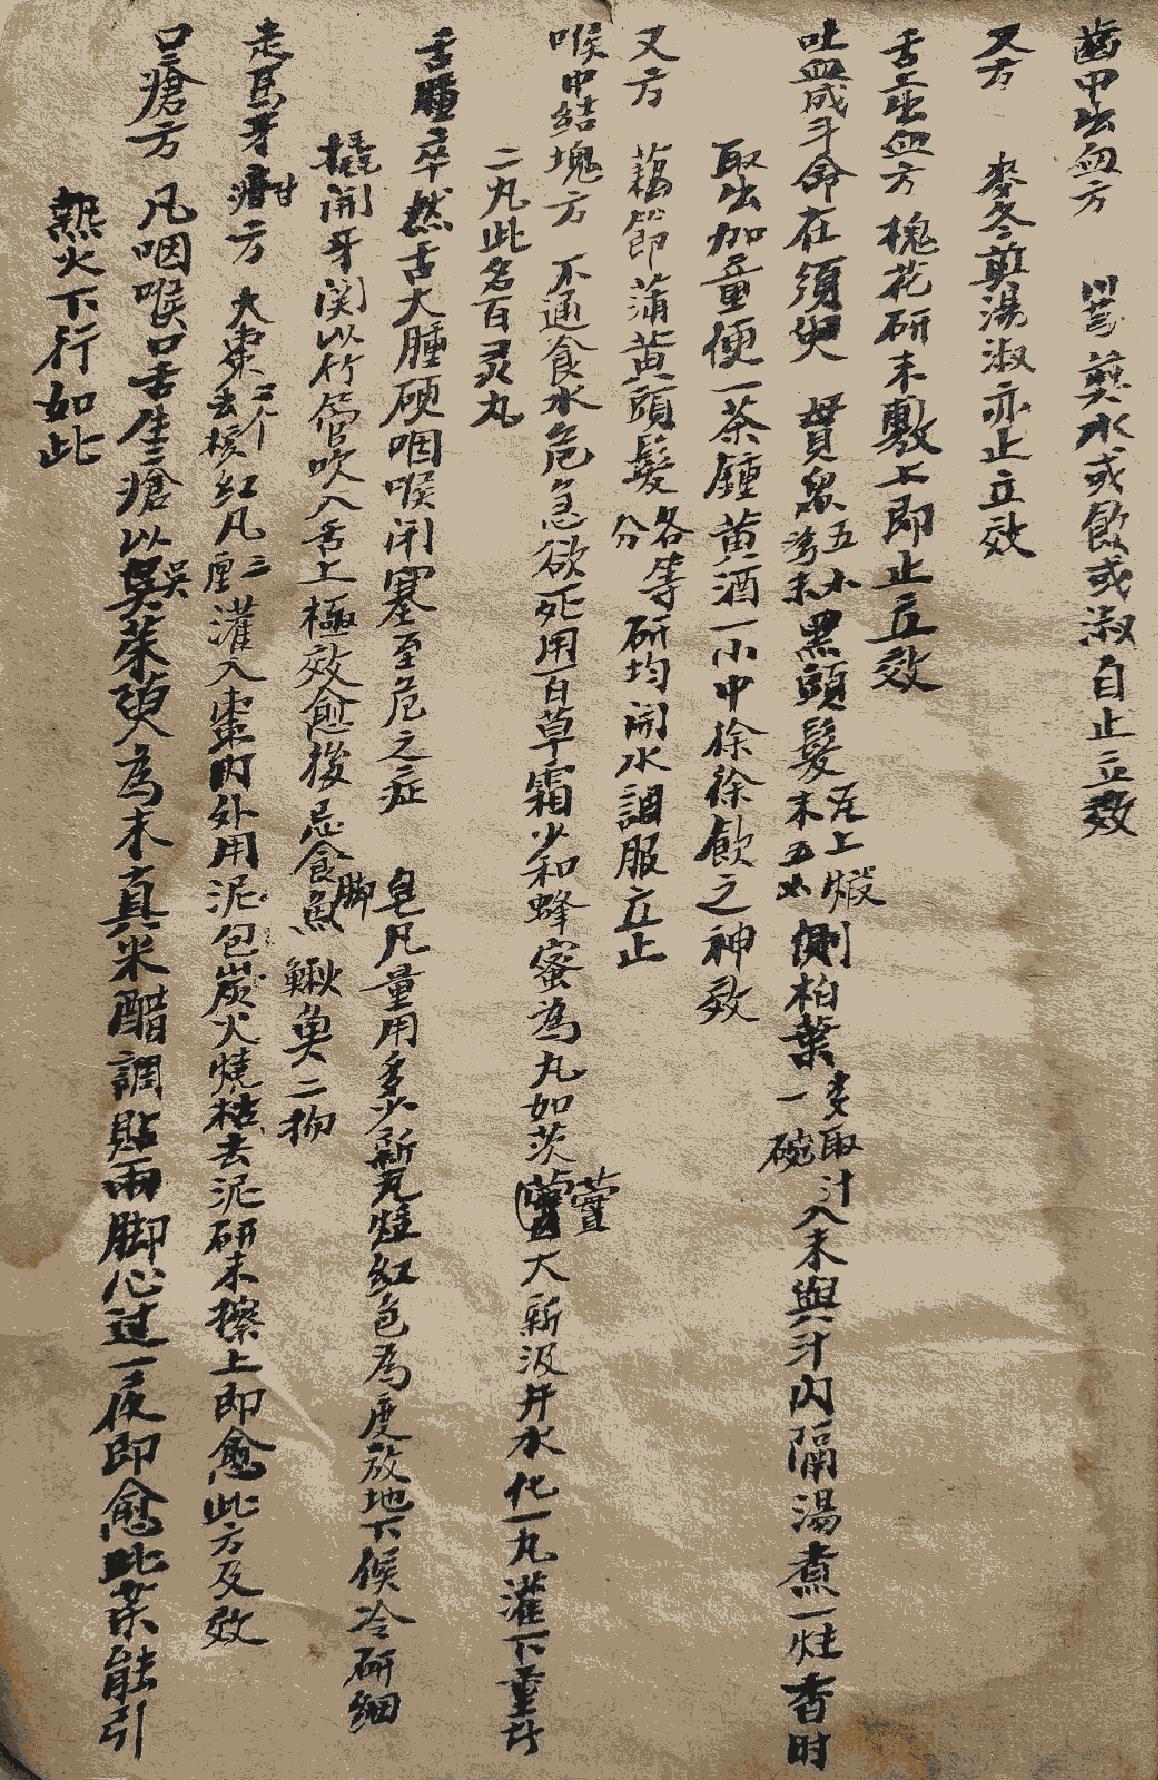 齒中出血方 川芎煎水或飲或漱自止立效
又方 麥冬煎湯漱亦止立效
舌上出血方 槐花研末敷上即止立效
吐血成斗命在須臾 貫衆五小湾末黑頭髮瓦上煅末五小側柏葉一碗取汁入末與汁内隔湯煮一炷香时
取出加童便一茶鍾黄酒一小中徐徐飲之神效
又方 藕節蒲黄頭髮各等分研均開水調服立止
喉中結塊方 不通食水危急欲死用百草霜少和蜂蜜為丸如茨大新汲井水化一丸灌下重者
二丸此名百灵丸
舌腫卒然舌大腫硬咽喉闭塞至危之症 皂凡量用多少新瓦煅紅色為度放地下候冷研細
撬開牙関以竹筒吹入舌上極效愈後忌食魚脚鰍魚二物
走馬牙疳方 大棗二个去核紅凡三厘灌入棗内外用泥包炭火燒枯去泥研末擦上即愈此方及效
口瘡方 凡咽喉口舌生瘡以吳茱萸為末真米醋調貼兩脚心过一夜即愈此药能引
熱火下行如此